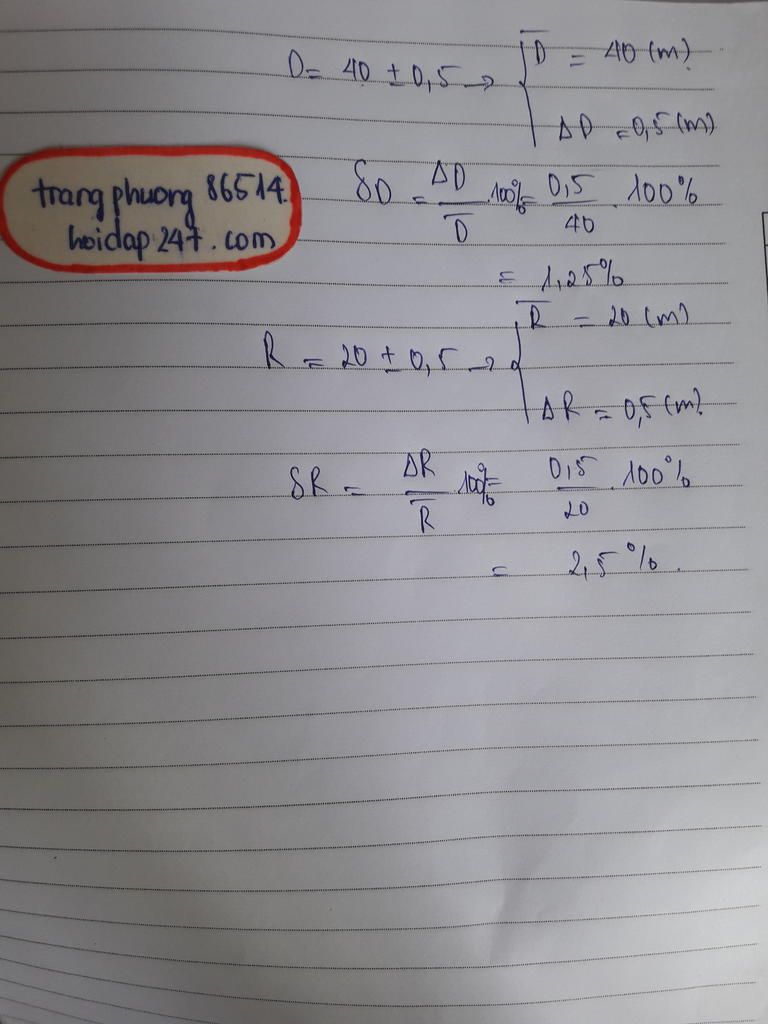 D = 40 ± 0,5 → { D̅ = 40 (m)
ΔD = 0,5 (m)
trangphuong 86514.
hoidap247.com
δD = ΔD / D̅ . 100% = 0,5 / 40 . 100%
= 1,25%
R = 20 ± 0,5 → { R̅ = 20 (m)
ΔR = 0,5 (m)
δR = ΔR / R̅ . 100% = 0,5 / 20 . 100%
= 2,5%.